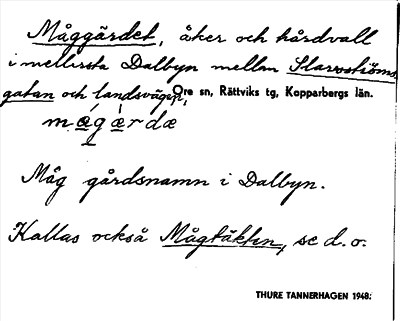 Måggärdet, åker och hårdvall
i mellersta Dalbyn mellan Slarvströms
gatan och landsvägen, Ore sn, Rättviks tg, Kopparbergs län.
mægærdæ
Måg gårdsnamn i Dalbyn.
Kallas också Mågtäkten, se d.o.
THURE TANNERHAGEN 1948.